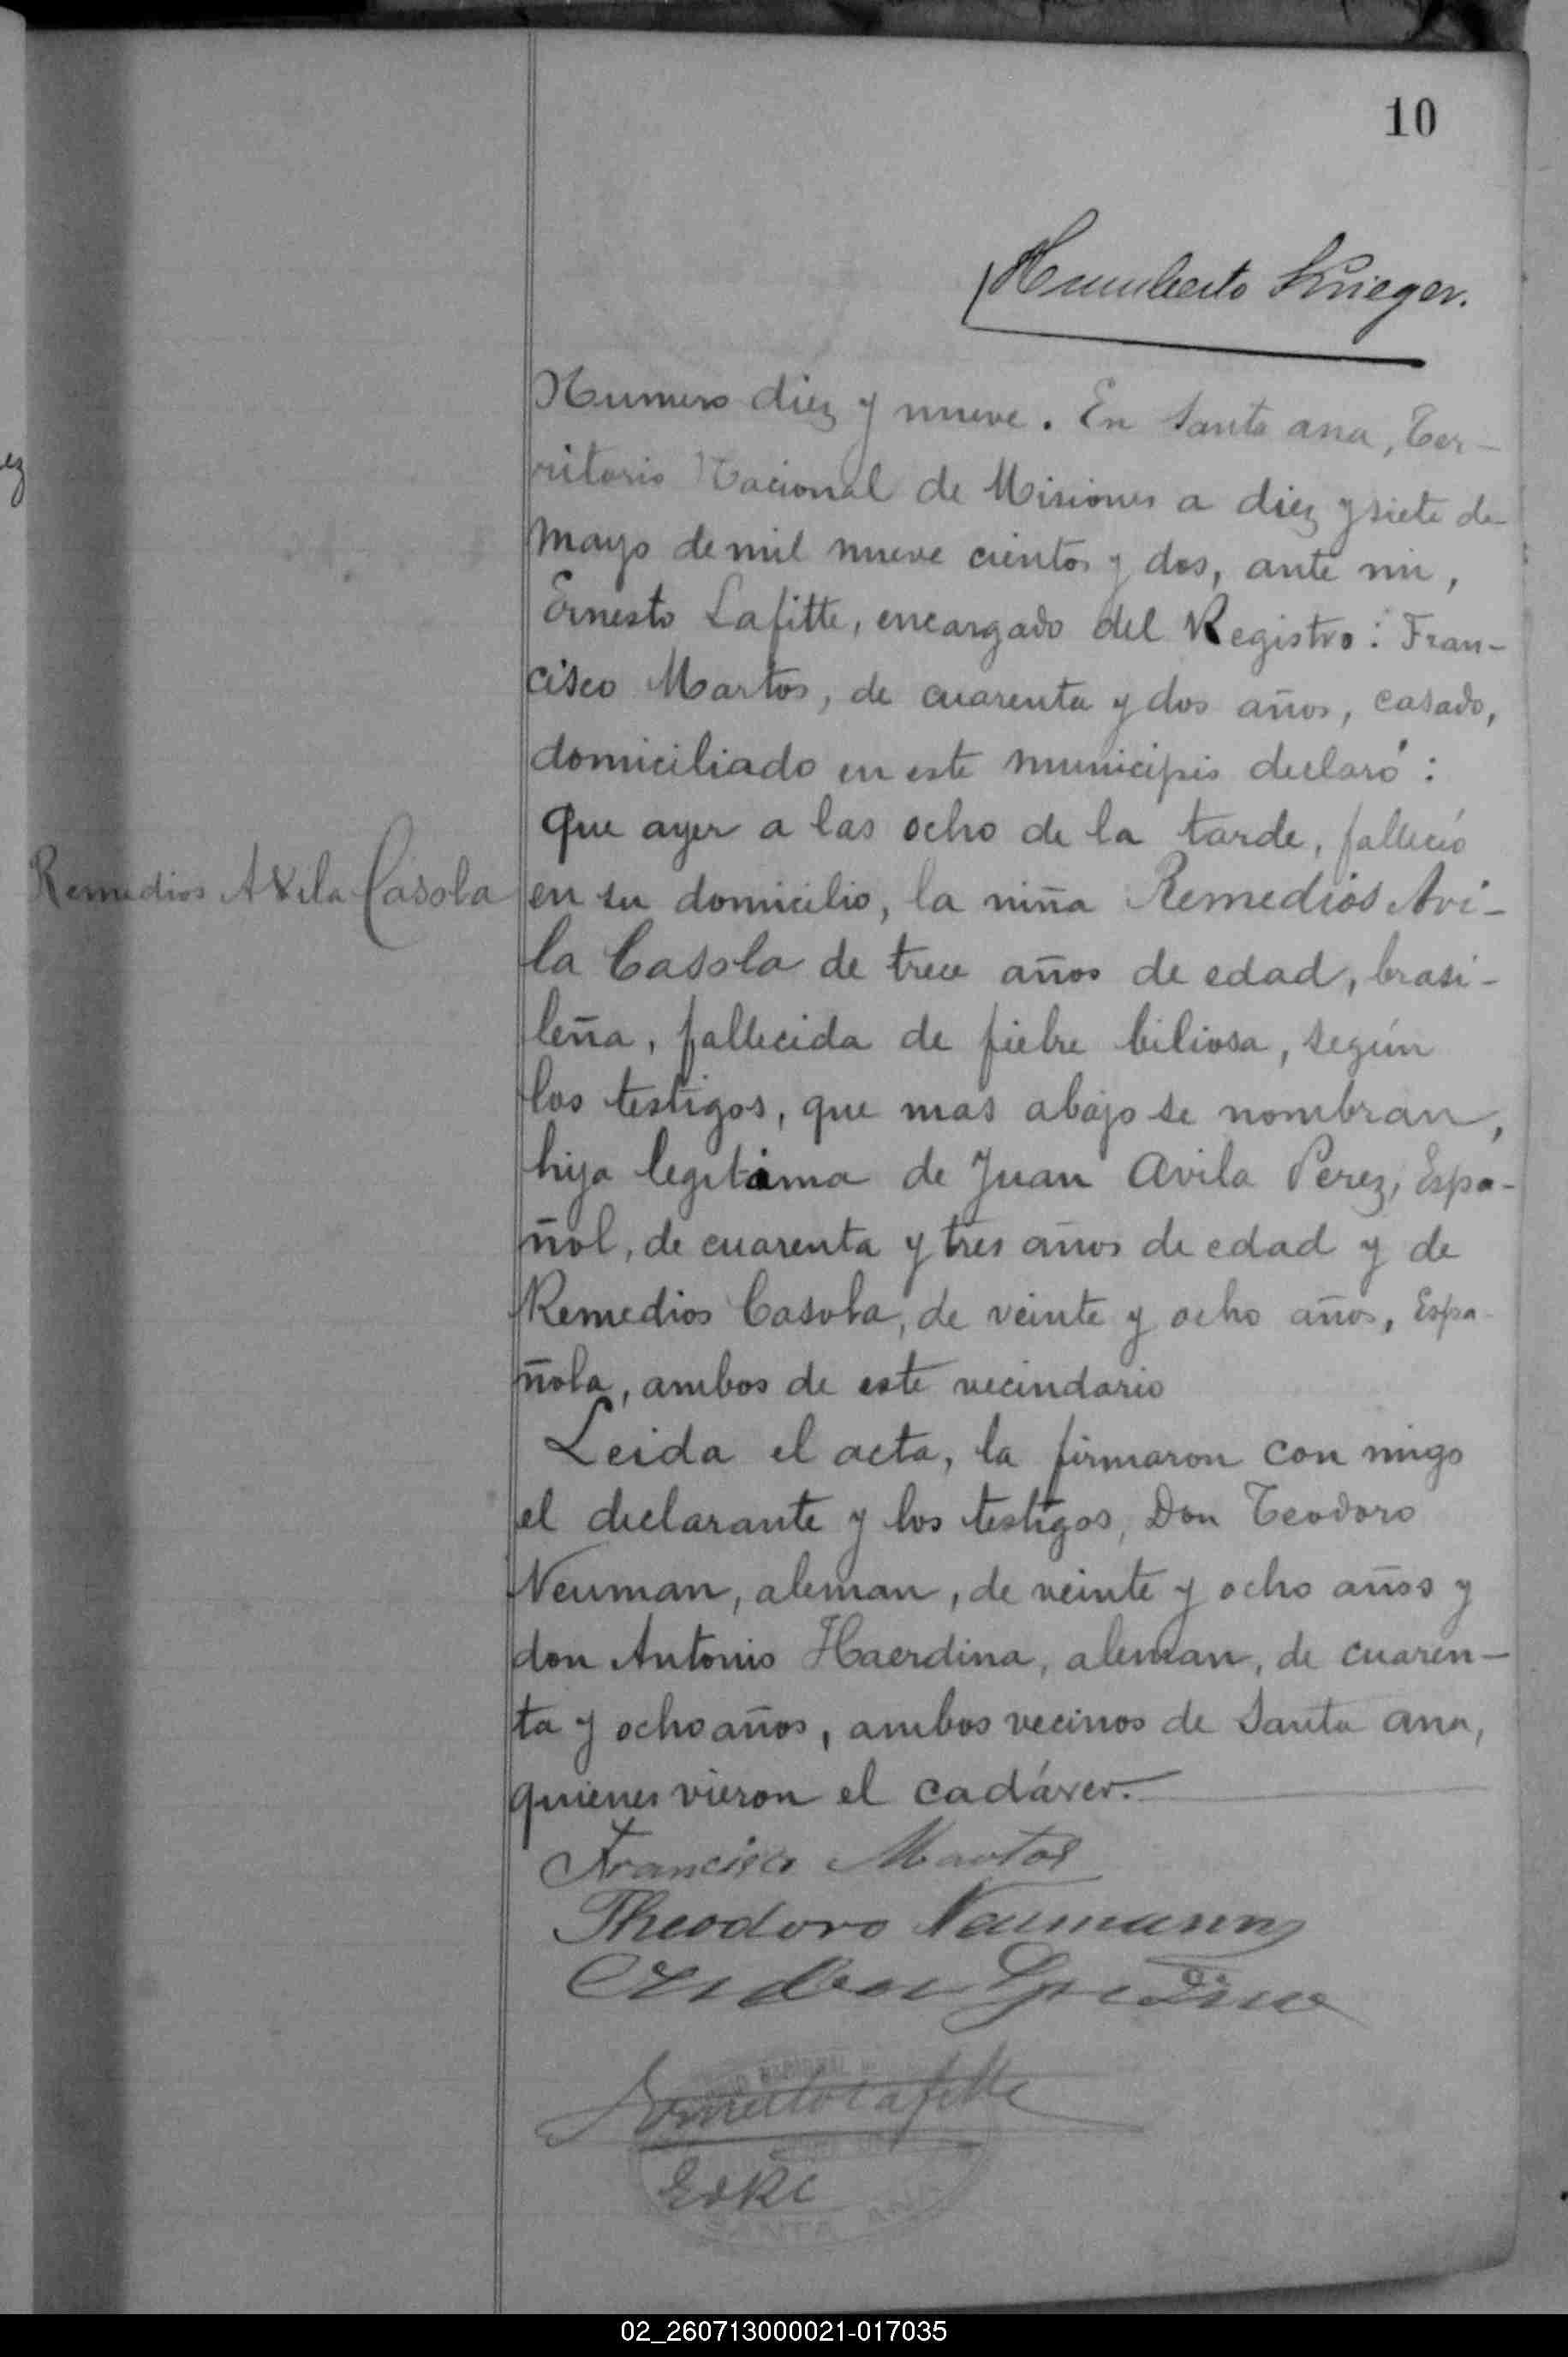 10
Humberto Krieger.
Numero diez y nueve. En Santa ana, Ter-
ritorio Nacional de Misiones a diez y siete de
Mayo de mil nueve cientos y dos, ante mi,
Ernesto Lafitte, encargado del Registro: Fran-
cisco Martos, de cuarenta y dos años, casado,
domiciliado en este municipio declaró:
Que ayer a las ocho de la tarde, falleció
Remedios Avila Casola
en su domicilio, la niña Remedios Avi-
la Casola de trece años de edad, brasi-
leña, fallecida de fiebre biliosa, según
los testigos, que mas abajo se nombran,
hija legitima de Juan Avila Perez, Espa-
ñol, de cuarenta y tres años de edad y de
Remedios Casola, de veinte y ocho años, Espa-
ñola, ambos de este vecindario
Leida el acta, la firmaron con migo
el declarante y los testigos, Don Teodoro
Neuman, aleman, de veinte y ocho años y
don Antonio Haerdina, aleman, de cuaren-
ta y ocho años, ambos vecinos de Santa ana,
quienes vieron el cadáver.
Francisco Martos
Theodoro Neumann
Ernesto Lafitte
SANTA ANA
02_260713000021-017035